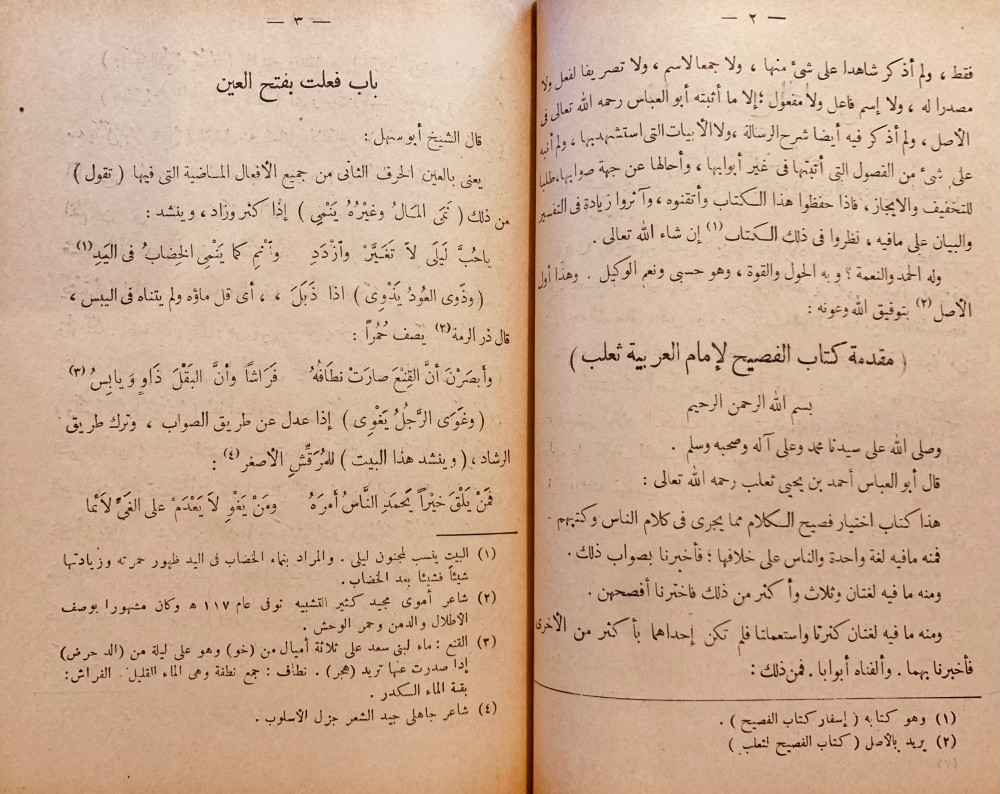 — ٢ —
فقط ، ولم أذكر شاهدا على شئ منها ، ولا جمعا لاسم ، ولا تصريفا لفعل ولا
مصدرا له ، ولا إسم فاعل ولا مفعول ؛ إلا ما أثبته أبو العباس رحمه الله تعالى فى
الأصل ، ولم أذكر فيه أيضا شرح الرسالة ، ولا الأبيات التى استشهد بها ، ولم أنبه
على شئ من الفصول التى أثبتها فى غير أبوابها ، وأحالها عن جهة صوابها ، طلبا
للتخفيف والايجاز ، فاذا حفظوا هذا الكتاب وأتقنوه ، وآثروا زيادة فى التفسير
والبيان على مافيه ، نظروا فى ذلك الكتاب (١) إن شاء الله تعالى .
وله الحمد والنعمة ؟ وبه الحول والقوة ، وهو حسبى ونعم الوكيل . وهذا أول
الأصل (٢) بتوفيق الله وعونه :
( مقدمة كتاب الفصيح لإمام العربية ثعلب )
بسم الله الرحمن الرحيم
وصلى الله على سيدنا محمد وعلى آله وصحبه وسلم .
قال أبو العباس أحمد بن يحيى ثعلب رحمه الله تعالى :
هذا كتاب اختيار فصيح الكلام مما يجرى فى كلام الناس وكتبهم .
فمنه مافيه لغة واحدة والناس على خلافها ؛ فأخبرنا بصواب ذلك .
ومنه ما فيه لغتان وثلاث وأكثر من ذلك فاخترنا أفصحهن .
ومنه ما فيه لغتان كثرتا واستعملتا فلم تكن إحداهما بأكثر من الأخرى
فأخبرنا بهما . وألفناه أبوابا . فمن ذلك :
(١) وهو كتابه ( إسفار كتاب الفصيح ) .
(٢) يريد بالأصل ( كتاب الفصيح لثعلب )
— ٣ —
باب فعلت بفتح العين
قال الشيخ أبو سهل :
يعنى بالعين الحرف الثانى من جميع الأفعال الماضية التى فيها ( تقول )
من ذلك ( نَمَى المَالُ وغَيْرُهُ يَنْمِي ) إذا كثر وزاد ، وينشد :
ياحُبَّ لَيلَى لاَ تَغَيَّرْ وَٱزْدَدِ وٱنْمِ كما يَنْمِى الخِضابُ فى اليَدِ (١)
( وذَوى العُودُ يَذْوِى ) اذا ذَبَلَ ، ، أى قل ماؤه ولم يتناه فى اليبس ،
قال ذر الرمة (٢) يصف حُمُراً :
وأبصَرْنَ أنَّ القِنْعَ صارَتْ نطَافُهُ فَرَاشًا وأنَّ البَقْلَ ذَاوٍ وَيابِسُ (٣)
( وغَوَى الرَّجُلُ يَغْوِى ) إذا عدل عن طريق الصواب ، وترك طريق
الرشاد ، ( وينشد هذا البيت ) للمُرَقِّشِ الأصغر (٤) :
فَمَنْ يَلْقَ خَيْراً يَحمَدِ النَّاسُ أمرَهُ ومَنْ يَغْوِ لاَ يَعْدَمْ على الغَىِّ لاَئما
(١) البيت ينسب لمجنون ليلى . والمراد بنماء الخضاب فى اليد ظهور حمرته وزيادتها
شيئاً فشيئا بعد الخضاب .
(٢) شاعر أموى مجيد كثير التشبيه توفى عام ١١٧ هـ وكان مشهورا بوصف
الأطلال والدمن وحمر الوحش .
(٣) القنع : ماء لبنى سعد على ثلاثة أميال من (خو) وهو على ليلة من (الدحرض)
إذا صدرت عنها تريد (هجر) . نطاف : جمع نطفة وهى الماء القليل . الفراش :
بقية الماء الكدر .
(٤) شاعر جاهلى جيد الشعر جزل الأسلوب .